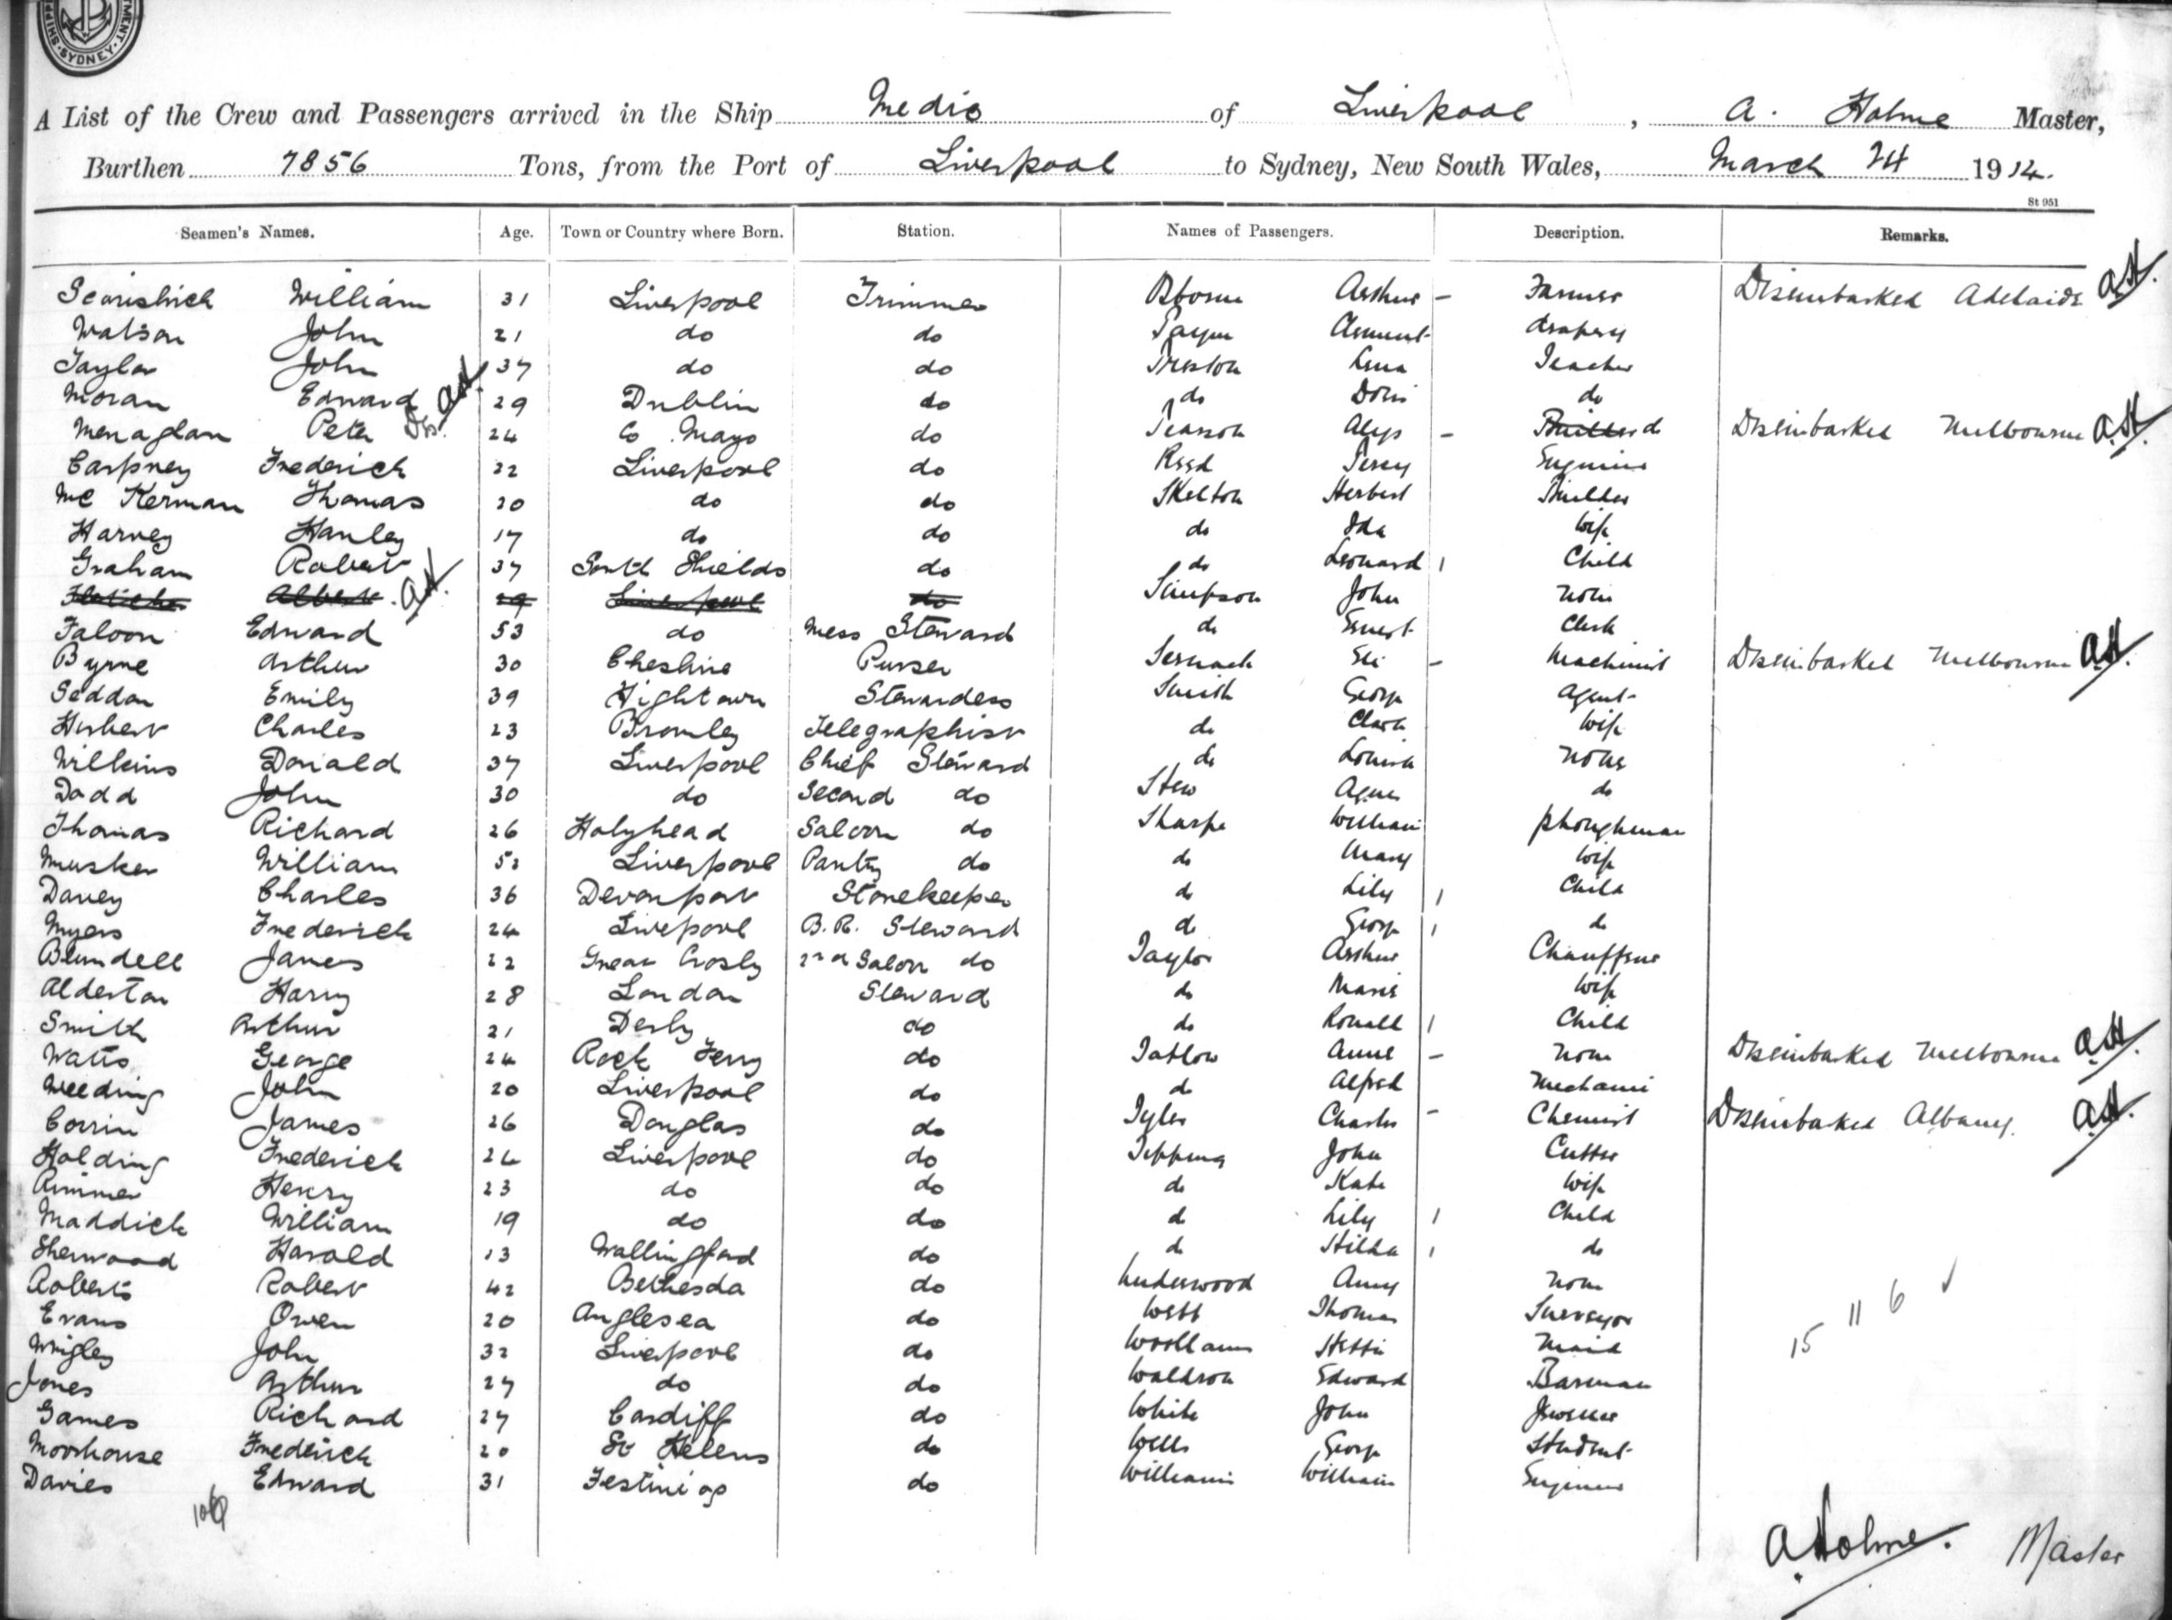 SYDNEY
A List of the Crew and Passengers arrived in the Ship Medic of Liverpool, A. Holme Master,
Burthen 7856 Tons, from the Port of Liverpool to Sydney, New South Wales, March 24 1914.
St 951
Seamen's Names. Age. Town or Country where Born. Station. Names of Passengers. Description. Remarks.
William 31 Liverpool Trimmer Osborne Arthur - Farmer Disembarked Adelaide A.H.
Watson John 21 do do Payne Clement drapery
Taylor John 37 do do Preston Lena Teacher
Moran Edward 29 Dublin do do Doris do
Menaghan Peter Dis. A.H. 24 Co Mayo do Pearson Alys - do Disembarked Melbourne A.H.
Carpney Frederick 22 Liverpool do Reed Percy Engineer
Mc Kerman Thomas 20 do do Skelton Herbert Builder
Harvey Hanley 17 do do do Ida Wife
Graham Robert 37 South Shields do do Leonard 1 Child
Fletcher Albert A.H. 29 Liverpool do Simpson John None
Faloon Edward 53 do Mess Steward do Ernest Clerk
Byrne Arthur 30 Cheshire Purser Eli - Machinist Disembarked Melbourne A.H.
Seddon Emily 39 Hightown Stewardess Smith George Agent
Herbert Charles 23 Bromley Telegraphist do Clara Wife
Wilkins Donald 37 Liverpool Chief Steward do Louisa None
Dodd John 30 do Second do Stew Agnes do
Thomas Richard 26 Holyhead Saloon do Sharpe William ploughman
Musker William 52 Liverpool Pantry do do Mary Wife
Davey Charles 36 Devonport Storekeeper do Lily 1 Child
Myers Frederick 24 Liverpool B.R. Steward do George 1 do
Blundell James 22 Great Crosby 2nd Saloon do Taylor Arthur Chauffeur
Alderton Harry 28 London Steward do Marie Wife
Smith Arthur 21 Derby do do Ronald 1 Child
Watts George 24 Rock Ferry do Tatlow Anne - None Disembarked Melbourne A.H.
Weeding John 20 Liverpool do do Alfred Mechanic
Corrin James 26 Douglas do Tyler Charles - Chemist Disembarked Albany. A.H.
Holding Frederick 24 Liverpool do Tepping John Cutter
Rimmer Henry 23 do do do Kate Wife
Maddick William 19 do do do Lily 1 Child
Sherwood Harold 23 Wallingford do do Hilda 1 do
Roberts Robert 42 Bethesda do Underwood Amy None
Evans Owen 20 Anglesea do Webb Thomas Surveyor
Wrigley John 32 Liverpool do Woollams Hettie Maid
Jones Arthur 27 do do Waldron Edward Barman
Games Richard 27 Cardiff do White John Jeweller
Moorhouse Frederick 20 St Helens do Wells George Student
Davies Edward 31 Festiniog do Williams William Engineer
15 11 6
A Holme. Master